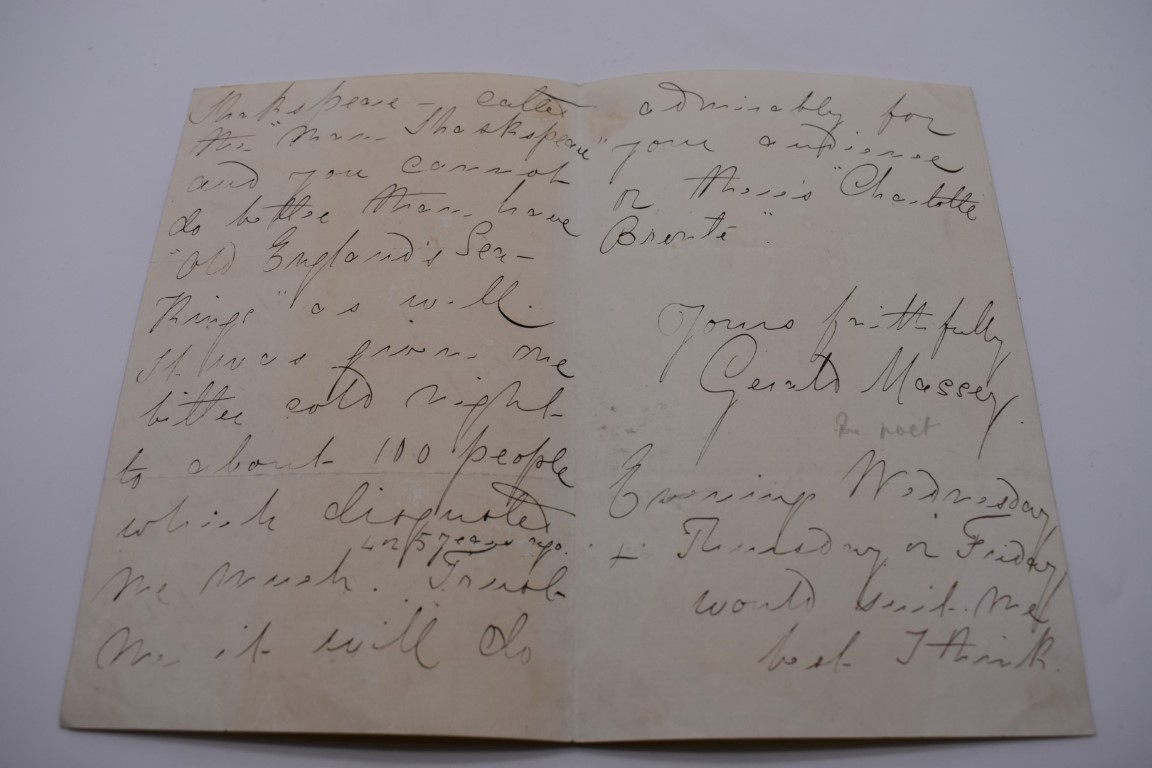 Shakspeare – called
the "Man Shakspeare"
and you cannot
do better than have
"Old England's Sea-
Kings" as well.
It was given one
bitter cold night
to about 100 people
which disgusted
4 or 5 years ago.
me much. Trust
me it will do
admirably for
your audience
or there's "Charlotte
Brontë".
Yours faithfully
Gerald Massey.
The poet
Evening Wednesday
+ Thursday or Friday
would suit me
best I think.